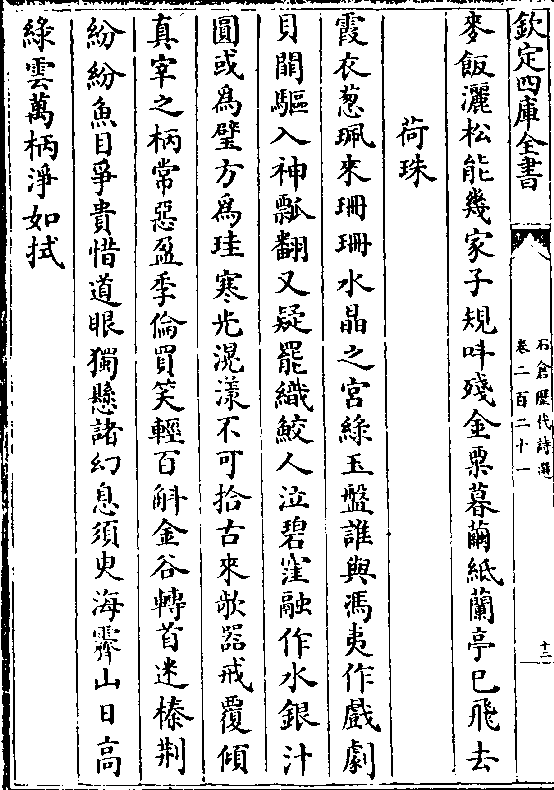 欽定四庫全書
石倉歷代詩選
卷二百二十一
十二
麥飯灑松能幾家子規呌殘金粟暮繭紙蘭亭已飛去
荷珠
霞衣葱珮來珊珊水晶之宮綠玉盤誰與馮夷作戲劇
貝闕驅入神瓢翻又疑罷織鮫人泣碧窪融作水銀汁
圓或為璧方為珪寒光滉漾不可拾古來欹器戒覆傾
真宰之柄常惡盈季倫買笑輕百斛金谷轉首迷榛荆
紛紛魚目爭貴惜道眼獨懸諸幻息須臾海霽山日高
綠雲萬柄淨如拭